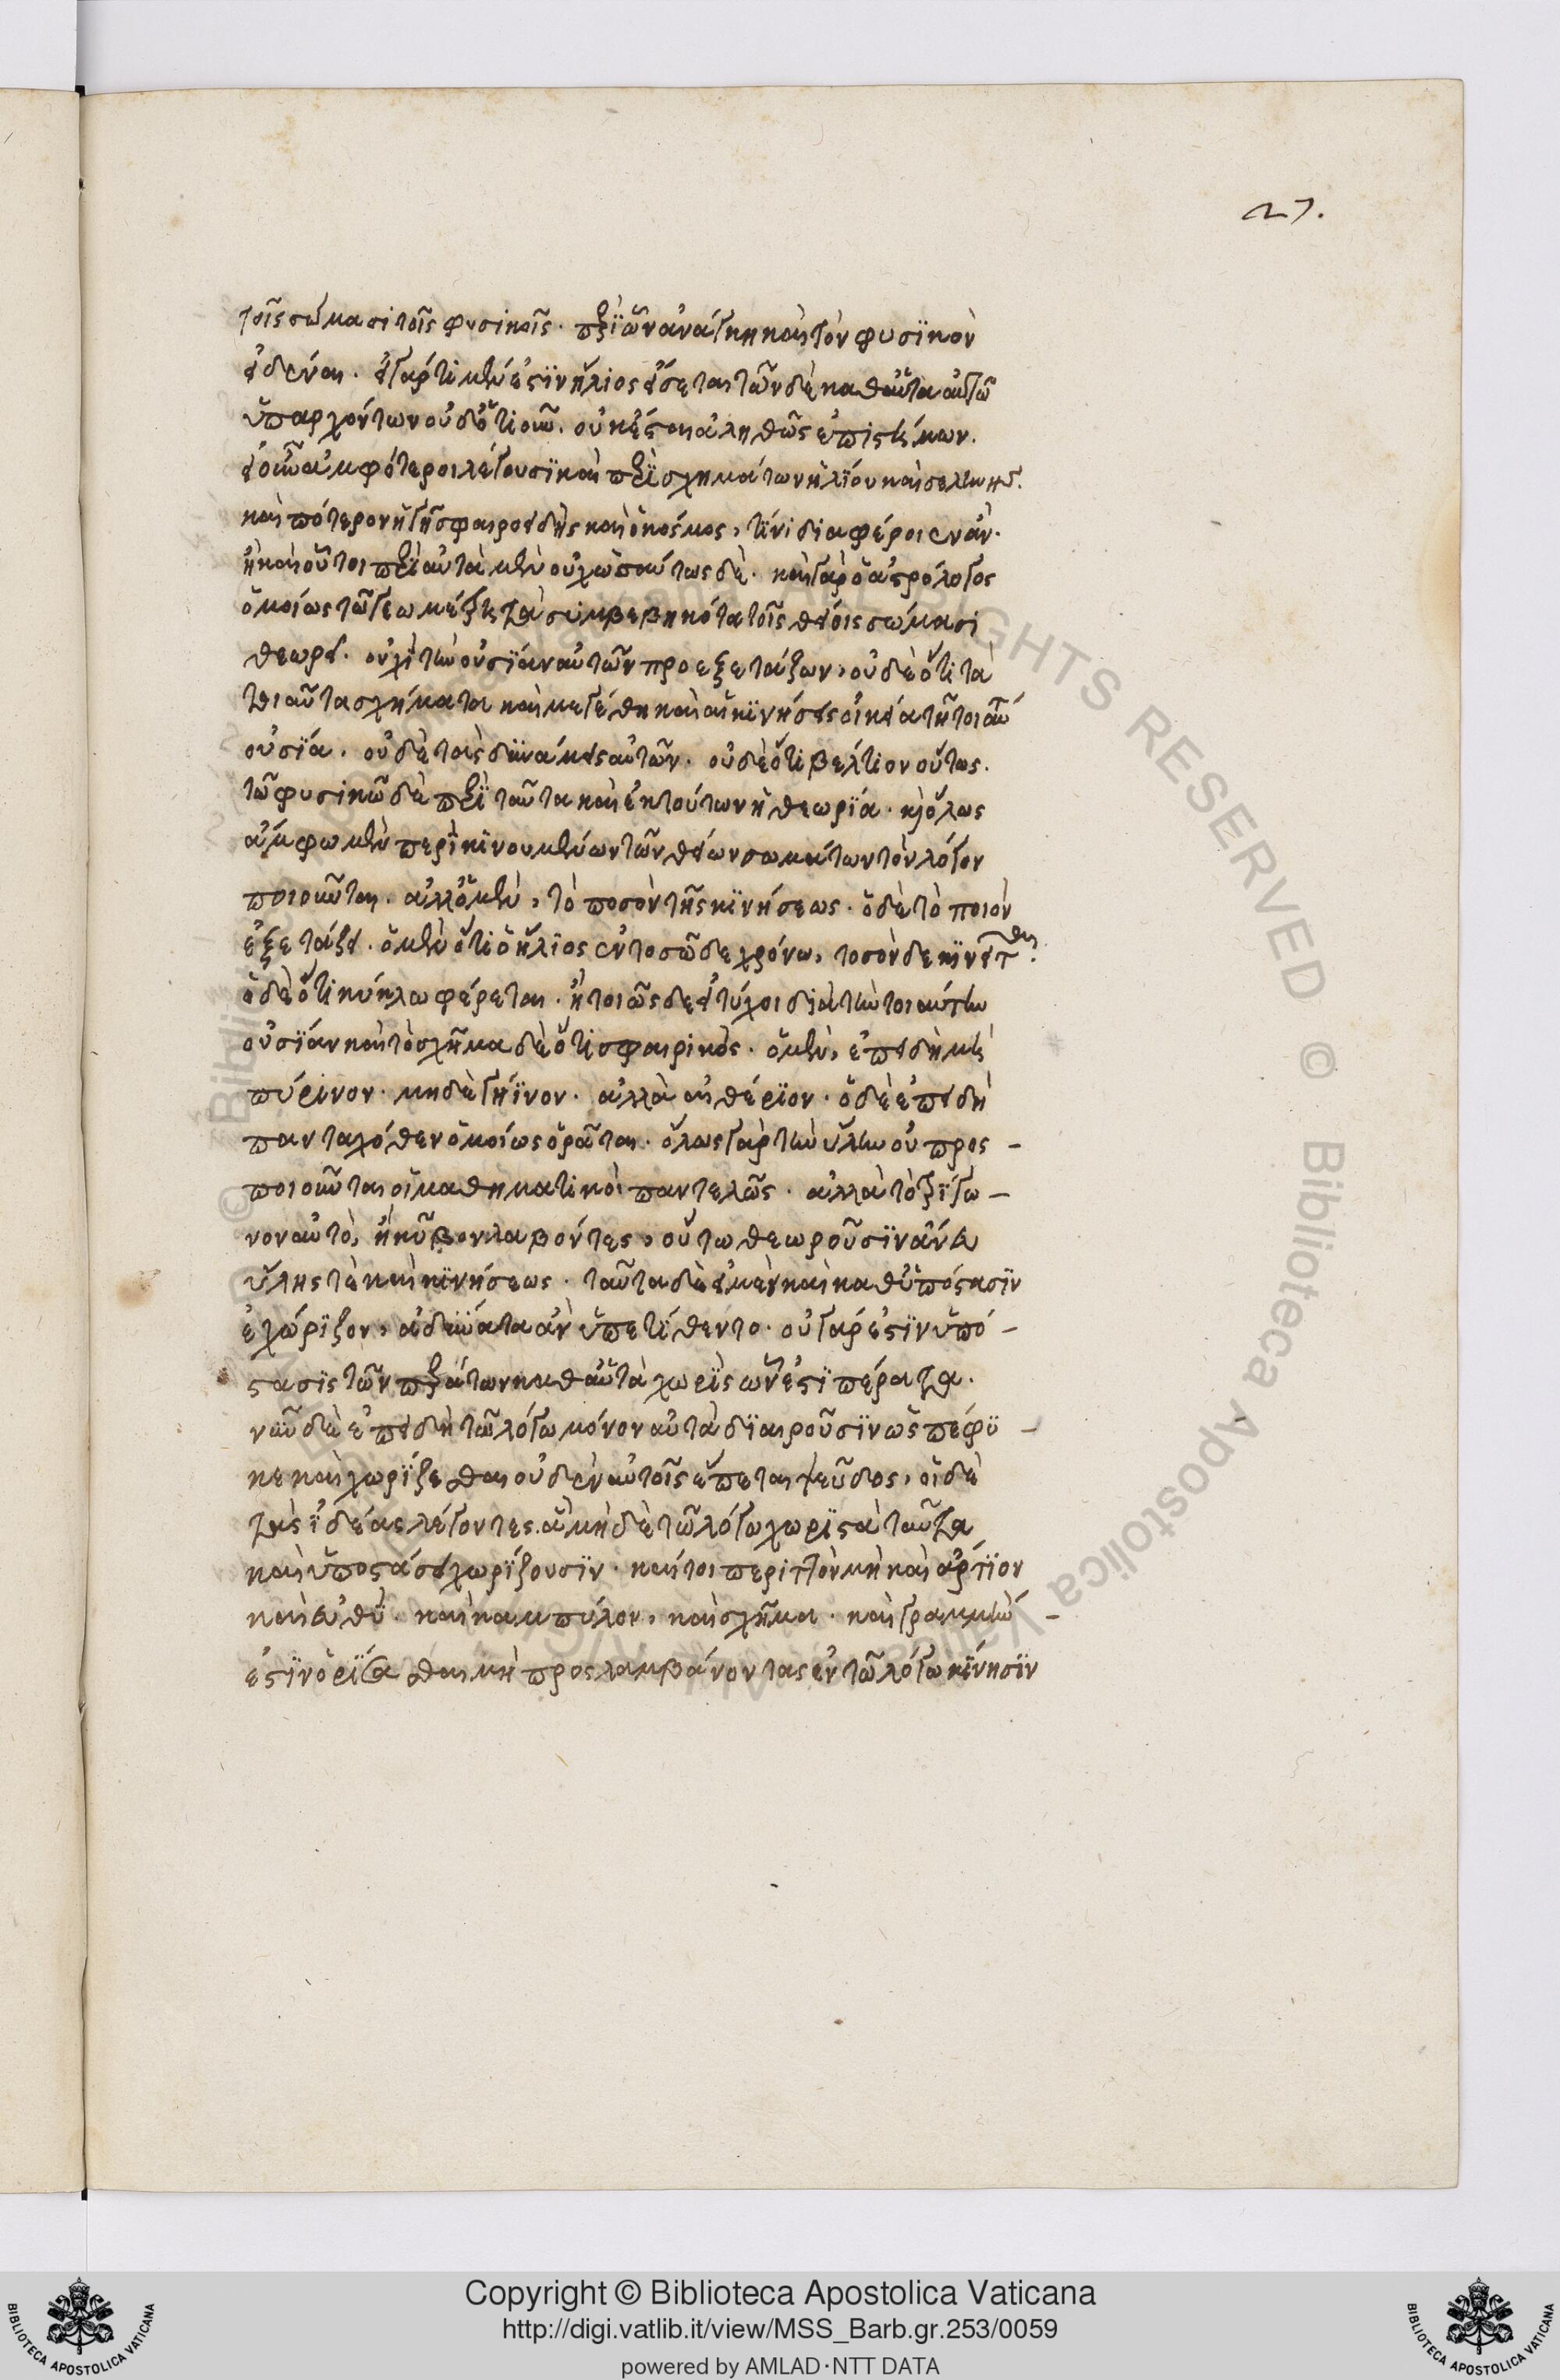 27.
τοῖς σώμασι τοῖς φυσικοῖς. περὶ ὧν ἀνάγκη καὶ τὸν φυσϊκὸν
εἰδέναι. εἰ γὰρ τί μέν ἐστϊν ἥλιος εἴσεται τῶν δὲ καθ' αὑτα αὐτῶ
ὑπαρχόντων οὐδ' ὁτιοῦν. οὐκ ἔσται ἀληθῶς ἐπιστήμων.
εἰ οὖν ἀμφότεροι λέγουσϊ καὶ περὶ σχημάτων ἡλϊου καὶ σελήνης.
καὶ πότερον ἡ γῆ σφαιροειδὴς καὶ ὁ κόσμος, τίνι διαφέροιεν ἂν.
ἢ καὶ οὗτοι περὶ αὐτὰ μὲν οὐχ ὡσαύτως δὲ. καὶ γὰρ ὁ ἀστρόλογος
ὁμοίως τῶ γεωμέτρη τὰ συμβεβηκότα τοῖς θείοις σώμασι
θεωρεῖ. οὐχὶ τὴν οὐσϊαν αὐτῶν προεξετάζων, οὐδὲ ὅτι τὰ
τοιαῦτα σχήματα καὶ μεγέθη καὶ αἱ κϊνήσεις οἰκεῖα τῆ τοιαύτη
οὐσϊα. οὐδὲ ταῖς δυνάμεις αὐτῶν. οὐδὲ ὅτι βέλτιον οὕτως.
τῶ φυσικῶ δὲ περὶ ταῦτα καὶ ἐκ τούτων ἡ θεωρϊα. καὶ ὅλως
ἄμφω μὲν περὶ κϊνουμένων τῶν θείων σωμάτων τὸν λόγον
ποιοῦνται. ἀλλ' ὁ μὲν, τὸ ποσὸν τῆς κϊνήσεως. ὁ δὲ τὸ ποιὸν
ἐξετάζει. ὁ μὲν ὅτι ὁ ἥλϊος ἐν τοσῶδε χρόνω, τοσόνδε κϊνεῖται.
ὁ δὲ ὅτι κύκλω φέρεται. ἢ τοιῶσδε εἰ τύχοι διὰ τὴν τοιαύτην
οὐσϊαν καὶ τὸ σχῆμα δὲ ὅτι σφαιρικὸς. ὁ μὲν, ἐπειδὴ μὴ
πύρινον. μηδὲ γήϊνον. ἀλλὰ αἰθέρϊον. ὁ δὲ ἐπειδὴ
πανταχόθεν ὁμοίως ὁρᾶται. ὅλως γὰρ τὴν ὕλην οὐ προς -
ποιοῦνται οἱ μαθηματικοὶ παντελῶς. ἀλλὰ τὸ τρίγω -
νον αὐτὸ, ἢ κῦβον λαβόντες, οὕτω θεωροῦσϊν ἄνευ
ὕλης τὲ καὶ κϊνήσεως. ταῦτα δὲ εἰ μὲν καὶ καθ' ὑπόστασϊν
ἐχώριζον, ἀδύνατα ἂν ὑπετίθεντο. οὐ γάρ ἐστϊν ὑπό -
στασϊς τῶν περάτων καθ' αὑτὰ χωρϊς ὧν ἐστϊ πέρατα.
νῦν δὲ ἐπειδὴ τῶ λόγω μόνον αὐτὰ δϊαιροῦσϊν ὡς πέφυ -
κε καὶ χωρϊζεσθαι οὐδὲν αὐτοῖς ἕπεται ψεῦδος, οἱ δὲ
τὰς ϊδέας λέγοντες. ἃ μὴ δὲ τῶ λόγω χωριστὰ ταῦτα
καὶ ὑποστάσει χωρϊζουσϊν. καίτοι περιττὸν μὴ καὶ ἄρτϊον
καὶ εὐθὺ. καὶ καμπύλον, καὶ σχῆμα. καὶ γραμμὴν -
ἐστϊν ὁρϊσασθαι μὴ προςλαμβάνοντας ἐν τῶ λόγω κίνησϊν
Copyright © Biblioteca Apostolica Vaticana
http://digi.vatlib.it/view/MSS_Barb.gr.253/0059
powered by AMLAD·NTT DATA
BIBLIOTECA APOSTOLICA VATICANA
BIBLIOTECA APOSTOLICA VATICANA